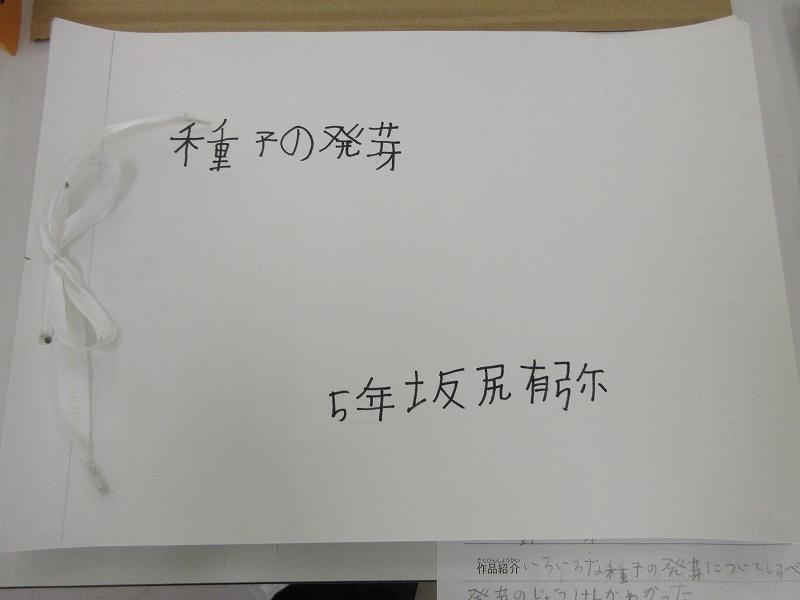 種子の発芽
5年坂尻有弥
さくひんしょうかい
作品紹介 いろいろな種子の発芽についてしらべ
発芽のじょうけんがわかった